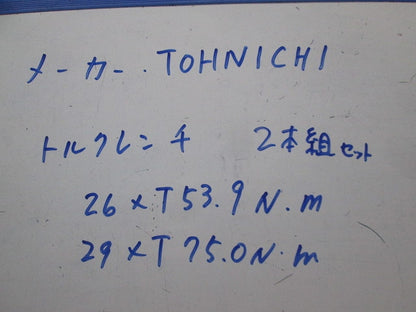 メーカー.TOHNICHI
トルクレンチ 2本組セット
26×T53.9N.m
29×T75.0N.m